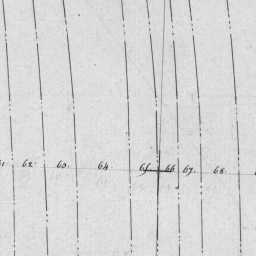 62. 60. 64 65 66 67. 68.